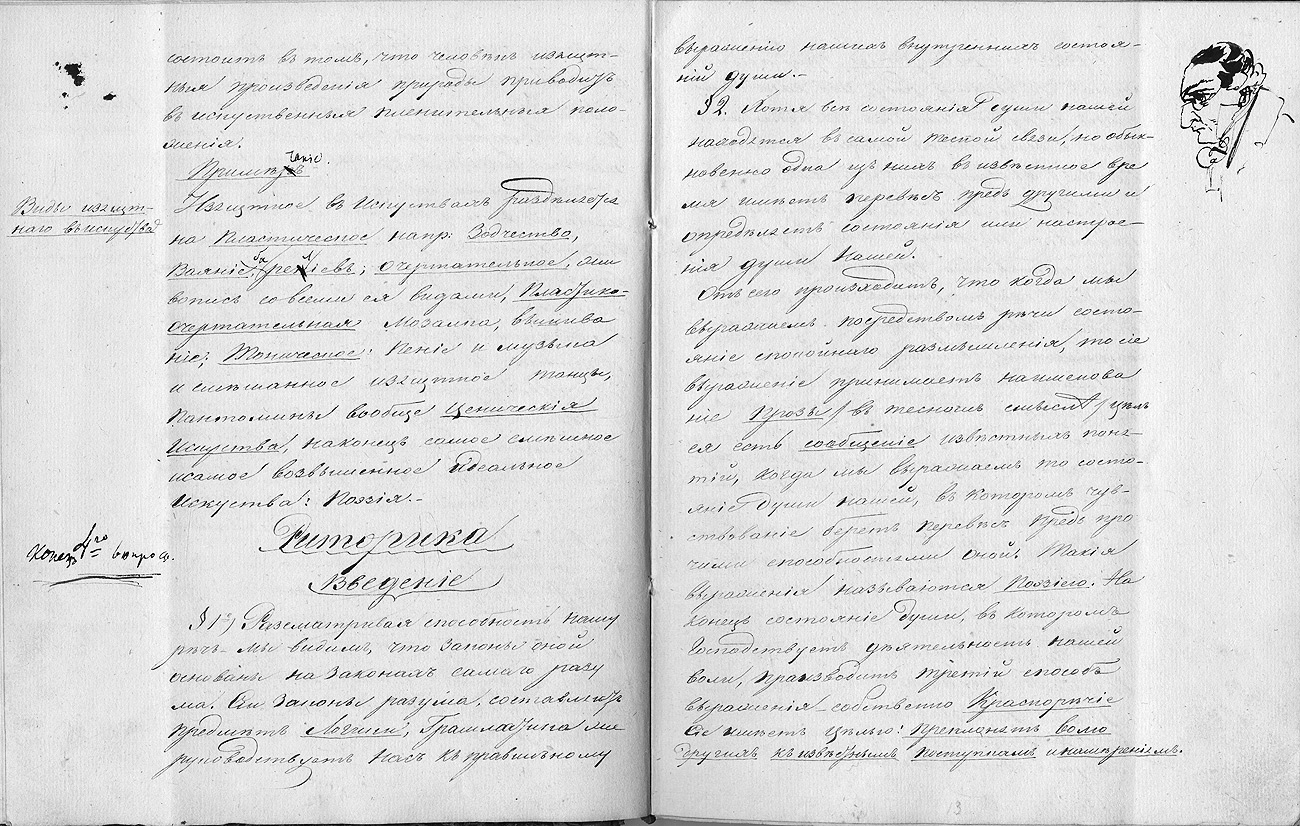 состоитъ въ томъ, что человѣкъ изящ-
ныя произведенія природы приводитъ
въ искуственныя плѣнительныя поло-
женія.
Примѣч
чаніе.
Виды изящ-
наго въ искуствахъ
Изящное въ Искуствахъ раздѣляется
на Пластическое напр: Зодчество,
Ваяніе, ба рельіевъ; очертательное, жи
вопись со всеми ея видами, Пластико-
очертательная Мозаика, вышива
ніе; Тоническое: Пеніе и музыка
и смѣшанное изящное танцы,
Пантомины вообще Ценическія
Искуства, наконецъ самое смѣшное
исамое возвышенное Идеальное
Искуства: Поэзія.-
Конецъ 4го вопроса.
Риторика
Введеніе
§ 1е) Разсматривая способность нашу
рѣчь - мы видимъ, что Законы оной
основаны на Законахъ самаго разу
ма. Сіи Законы разума, составляютъ
предметъ Логики, Грамматика же
руководствуетъ насъ къ правильному
выраженію нашихъ внутреннихъ состоя-
ній души.-
§ 2. Хотя всѣ состоянія души нашей
находятся въ самой тесной связи, но обык-
новенно одна изъ нихъ въ извѣстное вре
мя имѣетъ перевѣсъ предъ другими и
опредѣляетъ состоянія или настрое-
нія души Нашей.
Отъ сего произходитъ, что когда мы
выражаемъ посредствомъ рѣчи состо-
яніе спокойнаго размышленія, то сіе
выраженіе принимаетъ наименова
ніе Прозы / въ тесномъ смыслѣ / цѣль
ея есть сообщеніе извѣстныхъ поня-
тій, Когда мы выражаемъ то состо-
яніе души нашей, въ которомъ чув-
ствованіе беретъ перевѣсъ предъ про
чими способностями оной. Такія
выраженія называются Поэзіею. На
конецъ состояніе души, въ которомъ
Господствуетъ дѣятельность нашей
воли, производитъ третій способъ
выраженія - собственно Краснорѣчіе
Сіе имѣетъ цѣлью: Преклонять волю
другихъ къ извѣстнымъ поступкамъ и намѣреніямъ.
13